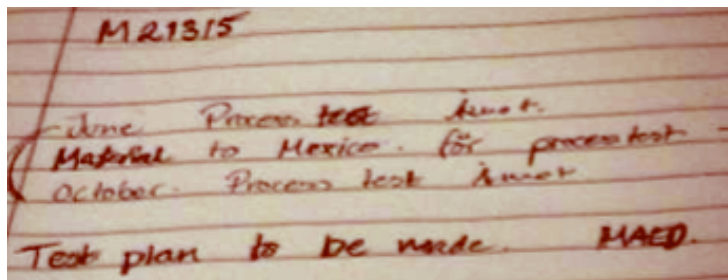 M21315
June Process test
Material to Mexico. for process test
October. Process test
Test plan to be made. MAED.